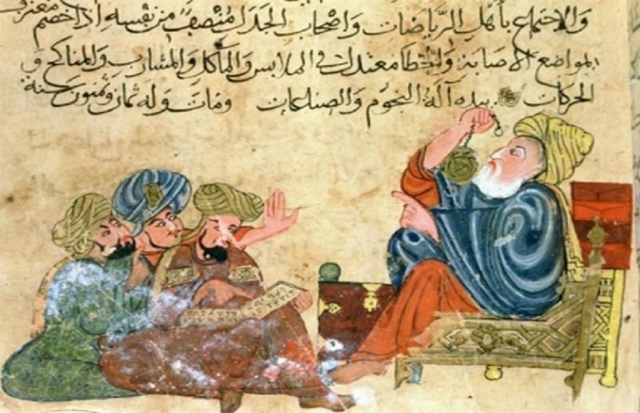 والاجتماع بأهل الرياضات وأصحاب الجدل منصف من نفسه إذا خصم معترف
بمواضع الاصابة والخطا معتدل في الملابس والمآكل والمشارب والمناكح و
الحركات بيده آلة النجوم والصناعات ومات وله ثمان وثمنون سنة